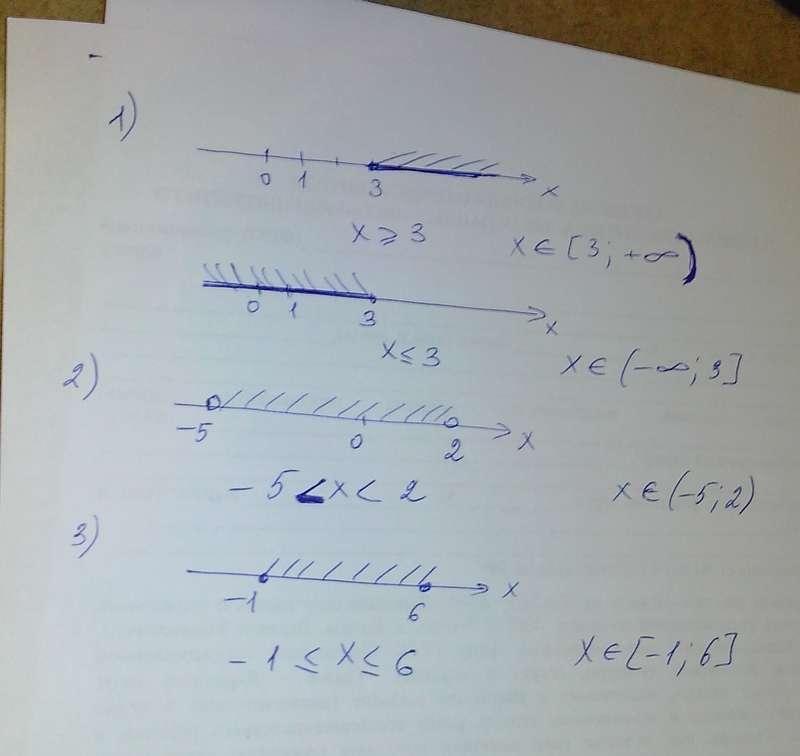 1)
0 1 3 x
x ⩾ 3 x ∈ [3; +∞)
0 1 3 x
x ≤ 3 x ∈ (-∞; 3]
2)
-5 0 2 x
-5 < x < 2 x ∈ (-5; 2)
3)
-1 6 x
-1 ≤ x ≤ 6 x ∈ [-1; 6]